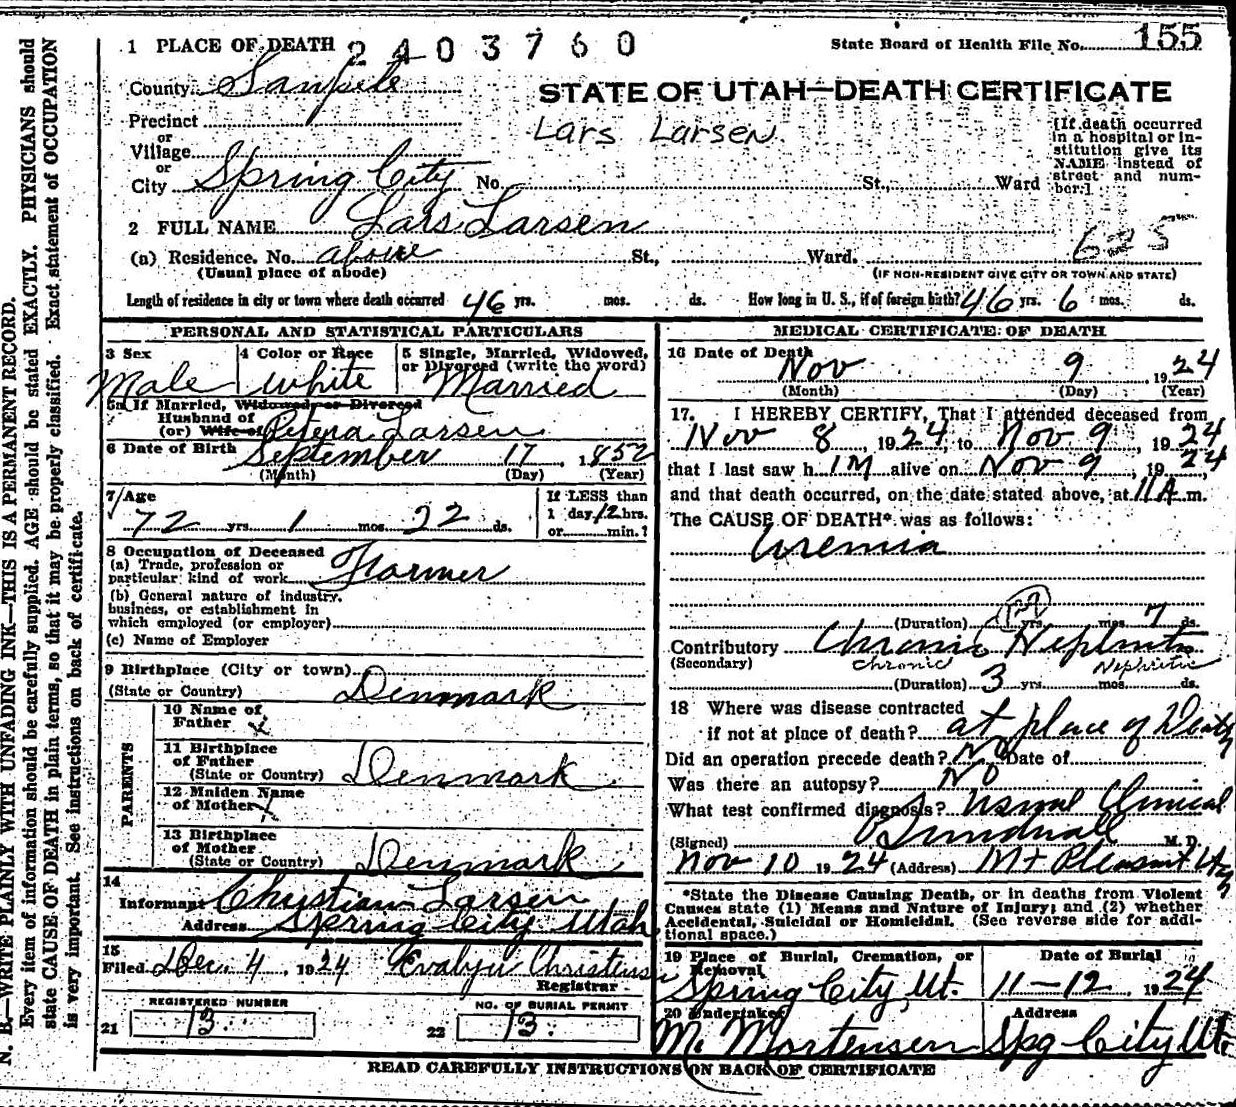 N. B.—WRITE PLAINLY WITH UNFADING INK—THIS IS A PERMANENT RECORD.
Every item of information should be carefully supplied. AGE should be stated EXACTLY. PHYSICIANS should
state CAUSE OF DEATH in plain terms, so that it may be properly classified. Exact statement of OCCUPATION
is very important. See instructions on back of certificate.
1 PLACE OF DEATH 2403760
State Board of Health File No. 155
County Sanpete
STATE OF UTAH—DEATH CERTIFICATE
Precinct
Lars Larsen
or
Village
or
City Spring City No. St., Ward
[If death occurred
in a hospital or in-
stitution give its
NAME instead of
street and num-
ber.]
2 FULL NAME Lars Larsen
625
(a) Residence. No. above St., Ward.
(Usual place of abode)
(IF NON-RESIDENT GIVE CITY OR TOWN AND STATE)
Length of residence in city or town where death occurred 46 yrs. mos. ds. How long in U. S., if of foreign birth? 46 yrs. 6 mos. ds.
PERSONAL AND STATISTICAL PARTICULARS
3 Sex
Male
4 Color or Race
white
5 Single, Married, Widowed,
or Divorced (write the word)
Married
5a If Married, Widowed or Divorced
Husband of
(or) Wife of Larsen
6 Date of Birth September 17 1852
(Month) (Day) (Year)
7 Age
72 yrs. 1 mos. 22 ds.
If LESS than
1 day, 12 hrs.
or min.?
8 Occupation of Deceased
(a) Trade, profession or
particular kind of work Farmer
(b) General nature of industry,
business, or establishment in
which employed (or employer)
(c) Name of Employer
9 Birthplace (City or town)
(State or Country) Denmark
PARENTS
10 Name of
Father x
11 Birthplace
of Father
(State or Country) Denmark
12 Maiden Name
of Mother x
13 Birthplace
of Mother
(State or Country) Denmark
14
Informant Christian Larsen
Address Spring City Utah
15
Filed Dec. 4, 1924 Evalyn Christensen
Registrar
REGISTERED NUMBER
21 13
NO. OF BURIAL PERMIT
22 13.
MEDICAL CERTIFICATE OF DEATH
16 Date of Death
Nov 9, 1924
(Month) (Day) (Year)
17. I HEREBY CERTIFY, That I attended deceased from
Nov 8, 1924, to Nov 9, 1924
that I last saw h im alive on Nov 9, 1924
and that death occurred, on the date stated above, at 11 A m.
The CAUSE OF DEATH* was as follows:
Uremia
(Duration) yrs. mos. 7 ds.
Contributory Chronic Nephritis
(Secondary) Chronic Nephritis
(Duration) 3 yrs. mos. ds.
18 Where was disease contracted
if not at place of death? at place of Death
Did an operation precede death? No Date of
Was there an autopsy? No
What test confirmed diagnosis? Usual Clinical
(Signed) Sundwall M. D.
Nov 10 1924 (Address) Mt Pleasant Utah
*State the Disease Causing Death, or in deaths from Violent
Causes state (1) Means and Nature of Injury; and (2) whether
Accidental, Suicidal or Homicidal. (See reverse side for addi-
tional space.)
19 Place of Burial, Cremation, or
Removal
Spring City, Ut.
Date of Burial
11-12, 1924
20 Undertaker
M. Mortensen
Address
Spg City Ut.
READ CAREFULLY INSTRUCTIONS ON BACK OF CERTIFICATE